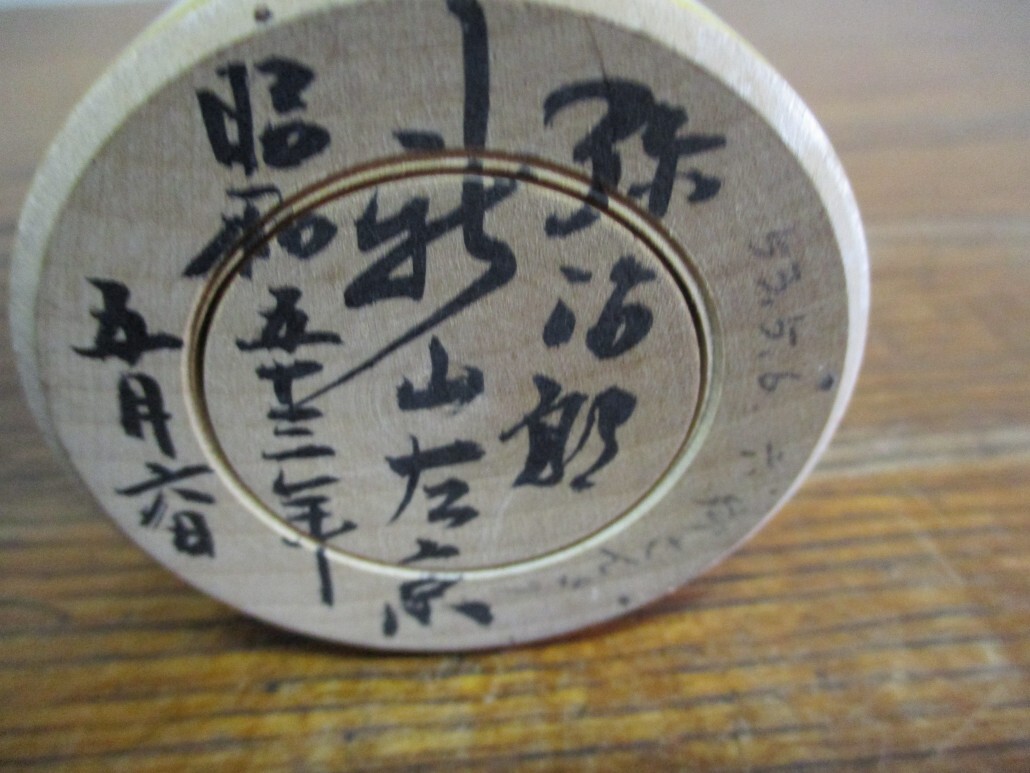 53.5.6
弥治郎
新山左京
昭和
五十三年
五月六日